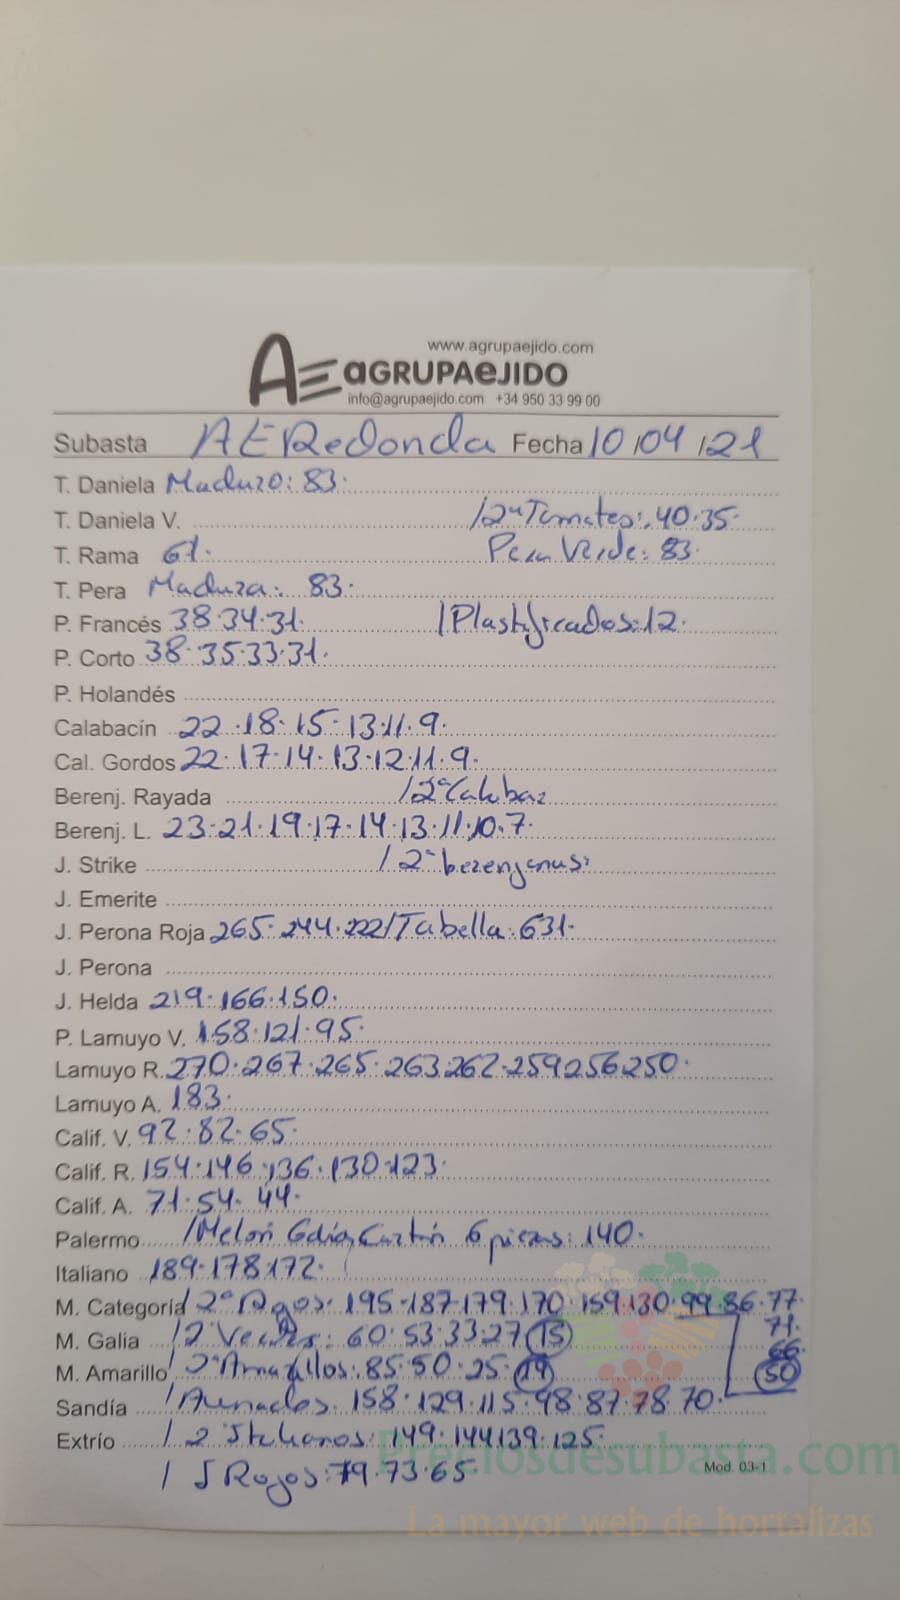 www.agrupaejido.com
AE aGRUPAeJIDO
info@agrupaejido.com +34 950 33 99 00
Subasta AE Redonda Fecha 10/04/21
T. Daniela Maduro: 83.
T. Daniela V. /2ª Tomates: 40.35.
T. Rama 61. Pera Verde: 83.
T. Pera Madura: 83.
P. Francés 38.34.31. /Plastificados: 12.
P. Corto 38.35.33.31.
P. Holandés
Calabacín 22.18.15.13.11.9.
Cal. Gordos 22.17.14.13.12.11.9.
Berenj. Rayada /2ª Calabaz
Berenj. L. 23.21.19.17.14.13.11.10.7.
J. Strike /2ª berenjenas:
J. Emerite
J. Perona Roja 265.244.222/Tabella: 631.
J. Perona
J. Helda 219.166.150.
P. Lamuyo V. 158.121.95.
Lamuyo R. 270.267.265.263.262.259.256.250.
Lamuyo A. 183.
Calif. V. 92.82.65.
Calif. R. 154.146.136.130.123.
Calif. A. 71.54.44.
Palermo /Melón Galia, Cartón 6 piezas: 140.
Italiano 189.178.172.
M. Categoría /2ª Rojos: 195.187.179.170.159.130.99.86.77.
71.
M. Galia /2 Verdes: 60.53.33.27.15
66.
M. Amarillo /2ª Amarillos: 85.50.25.19
50
Sandía /Asurados: 158.129.115.98.87.78.70.
Extrío /2 Italianos: 149.144.139.125.
/ S Rojos: 79.73.65
Mod. 03-1
Preciosdesubasta.com
La mayor web de hortalizas